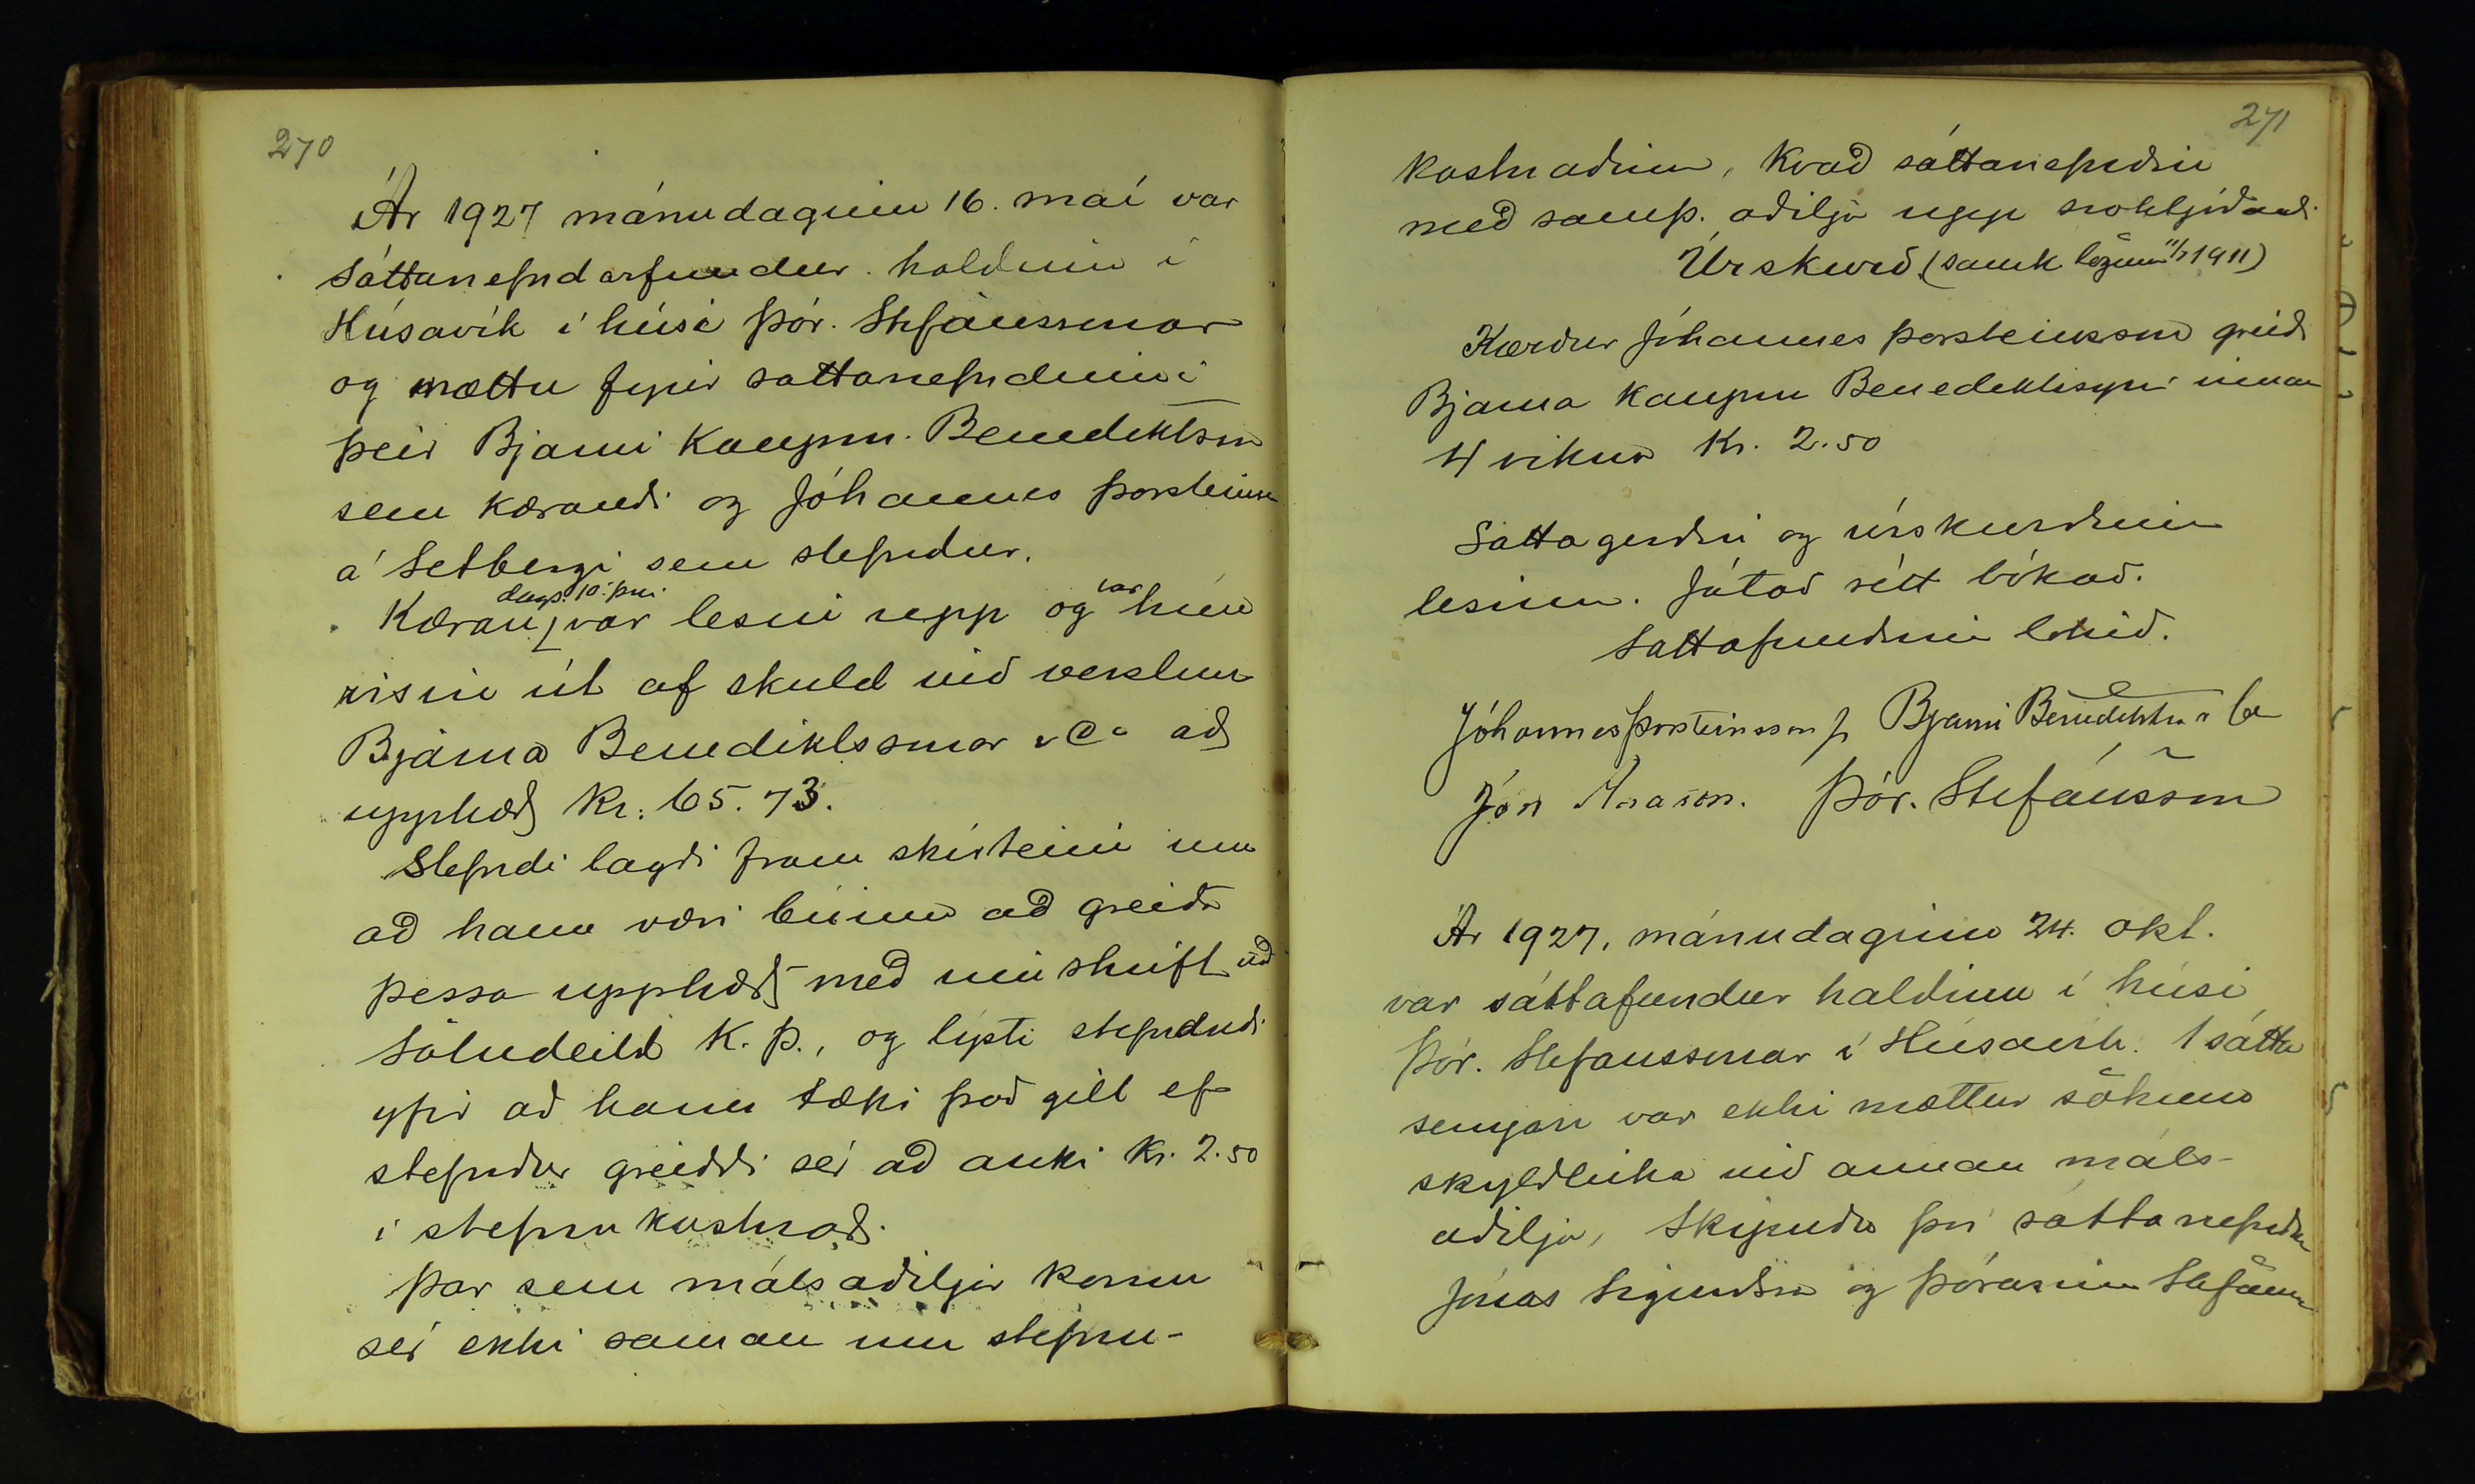 270
Ár 1927 mánudaginn 16. maí var
Sáttanefndarfundur haldinn í
Húsavík í húsi Þór. Stefánssonar
og mættu fyrir sáttanefndinni
þeir Bjarni Kaupm. Benediktson
sem kærandi og Jóhannes Þorsteinss
á Setbergi sem stefndur.
Kæran, dags. 10. þ.m. var lesin upp og var hún
risin út af skuld við verslun
Bjarna Benediktssonar & Co að
upphæð Kr: 65.73.
Stefndi lagði fram skírteini um
að hann væri búinn að greiða
þessa upphæð með innskrift við
Söludeild K. Þ., og lýsti stefnandi
yfir að hann tæki það gilt ef
stefndur greiddi sér að auki Kr. 2.50
í stefnukostnað.
Þar sem málsaðiljar komu
sér ekki saman um stefnu-
271
kostnaðinn, kvað sáttanefndin
með samþ. aðilja upp svohljóðandi
Úrskurð (samk lögum 11/7 1911)
Kærður Jóhannes Þorsteinsson greiði
Bjarna Kaupm Benediktssyni innan
4 vikna Kr. 2.50
Sáttagerðin og úrskurðurinn
lesinn. Játað rétt bókað.
Sáttafundinum lokið.
Jóhannes Þorsteinsson p Bjarni Benediktsson & Co
Jón Arason. Þór. Stefánsson
Ár 1927, mánudaginn 24. okt.
var sáttafundur haldinn í húsi
Þór. Stefánssonar í Húsavík. 1 sátta
semjari var ekki mættur sökum
skyldleika við annan máls-
aðilja, Skipuðu því sáttanefndina
Jónas Sigurðsson og Þórarinn Stefánss